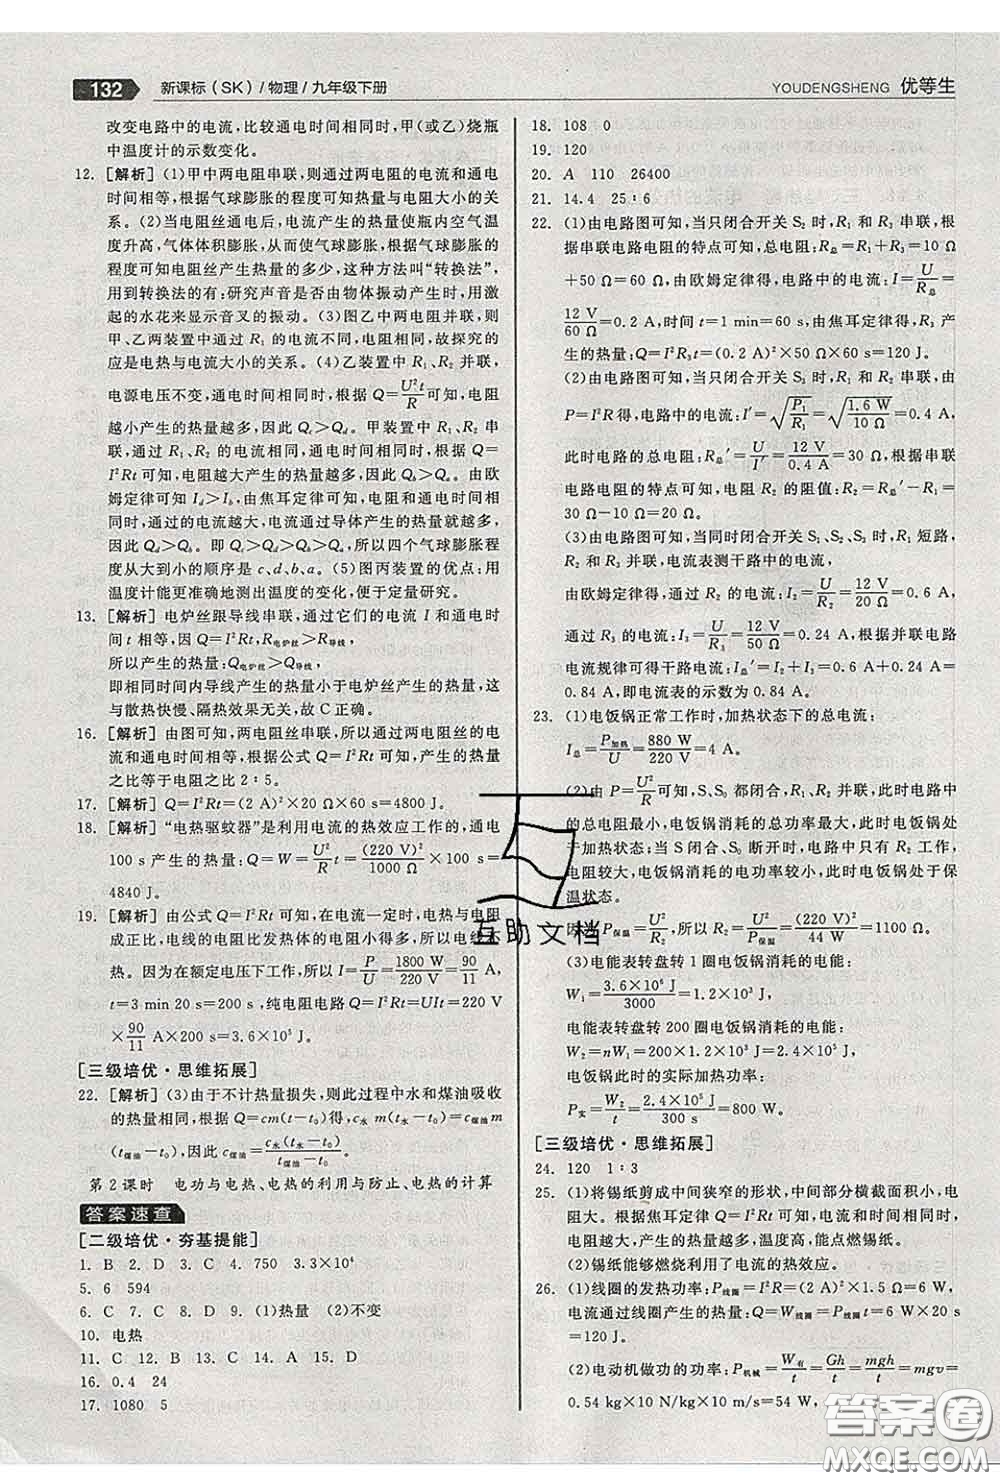 132 新课标(SK)/物理/九年级下册
YOUDENGSHENG 优等生
改变电路中的电流,比较通电时间相同时,甲(或乙)烧瓶
中温度计的示数变化。
12. [解析] (1)甲中两电阻串联,则通过两电阻的电流和通电
时间相等,根据气球膨胀的程度可知热量与电阻大小的关
系。(2)当电阻丝通电后,电流产生的热量使瓶内空气温
度升高,气体体积膨胀,从而使气球膨胀,根据气球膨胀的
程度可知电阻丝产生热量的多少,这种方法叫“转换法”,
用到转换法的有:研究声音是否由物体振动产生时,用激
起的水花来显示音叉的振动。(3)图乙中两电阻并联,则
甲、乙两装置中通过R₁的电流不同,电阻相同,故探究的
应是电热与电流大小的关系。(4)乙装置中R₁、R₂并联,
电源电压不变,通电时间相同时,根据Q=U²t/R可知,电阻
越小产生的热量越多,因此Q_c>Q_d。甲装置中R₁、R₂串
联,通过R₁、R₂的电流相同,通电时间相同时,根据Q=
I²Rt可知,电阻越大产生的热量越多,因此Q_b>Q_a。由欧
姆定律可知I_d>I_b,由焦耳定律可知,电阻和通电时间相
同时,通过的电流越大,电流通过导体产生的热量就越多,
因此Q_d>Q_b。即Q_c>Q_d>Q_b>Q_a,所以四个气球膨胀程度
从大到小的顺序是c、d、b、a。(5)图丙装置的优点:用
温度计能更准确地测出温度的变化,便于定量研究。
13. [解析] 电炉丝跟导线串联,通过它们的电流I和通电时
间t相等,因Q=I²Rt,R电炉丝>R导线,
所以产生的热量:Q电炉丝>Q导线,
即相同时间内导线产生的热量小于电炉丝产生的热量,这
与散热快慢、隔热效果无关,故C正确。
16. [解析] 由图可知,两电阻丝串联,所以通过两电阻丝的电
流和通电时间相等,根据公式Q=I²Rt可知,产生的热量
之比等于电阻之比2∶5。
17. [解析] Q=I²Rt=(2 A)²×20 Ω×60 s=4800 J。
18. [解析] “电热驱蚊器”是利用电流的热效应工作的,通电
100 s产生的热量:Q=W=U²/R t=(220 V)²/1000 Ω×100 s=
4840 J。
19. [解析] 由公式Q=I²Rt可知,在电流一定时,电热与电阻
成正比,电线的电阻比发热体的电阻小得多,所以电线不
热。因为在额定电压下工作,所以I=P/U=1800 W/220 V=90/11 A,
t=3 min 20 s=200 s,纯电阻电路Q=I²Rt=UIt=220 V
×90/11 A×200 s=3.6×10⁵ J。
[三级培优·思维拓展]
22. [解析] (3)由于不计热量损失,则此过程中水和煤油吸收
的热量相同,根据Q=cm(t-t₀)得,c水m(t水-t₀)=c煤油m
(t煤油-t₀),因此c煤油=c水(t水-t₀)/(t煤油-t₀)。
第2课时 电功与电热、电热的利用与防止、电热的计算
答案速查
[二级培优·夯基提能]
1. B 2. D 3. C 4. 750 3.3×10⁴
5. 6 594
6. C 7. C 8. D 9. (1)热量 (2)不变
10. 电热
11. C 12. B 13. C 14. A 15. D
16. 0.4 24
17. 1080 5
18. 108 0
19. 120
20. A 110 26400
21. 14.4 25∶6
22. (1)由电路图可知,当只闭合开关S₂时,R₁和R₃串联,根
据串联电路电阻的特点可知,总电阻:R总=R₁+R₃=10 Ω
+50 Ω=60 Ω,由欧姆定律得,电路中的电流:I=U/R总=
12 V/60 Ω=0.2 A,时间t=1 min=60 s,由焦耳定律得,R₃产
生的热量:Q=I²R₃t=(0.2 A)²×50 Ω×60 s=120 J。
(2)由电路图可知,当只闭合开关S₃时,R₁和R₂串联,由
P=I²R得,电路中的电流:I′=√(P₁/R₁)=√(1.6 W/10 Ω)=0.4 A,
此时电路的总电阻:R总′=U/I′=12 V/0.4 A=30 Ω,根据串联
电路电阻的特点可知,电阻R₂的阻值:R₂=R总′-R₁=
30 Ω-10 Ω=20 Ω。
(3)由电路图可知,当同时闭合开关S₁、S₂、S₃时,R₁短路,
R₂和R₃并联,电流表测干路中的电流,
由欧姆定律得,通过R₂的电流:I₂=U/R₂=12 V/20 Ω=0.6 A,
通过R₃的电流:I₃=U/R₃=12 V/50 Ω=0.24 A,根据并联电路
电流规律可得干路电流:I总′=I₂+I₃=0.6 A+0.24 A=
0.84 A,即电流表的示数为0.84 A。
23. (1)电饭锅正常工作时,加热状态下的总电流:
I总=P加热/U=880 W/220 V=4 A。
(2)由P=U²/R可知,S、S₀都闭合时,并联,此时电路中
的总电阻最小,电饭锅消耗的总功率最大,此时电饭锅处
于加热状态;当S闭合、S₀断开时,电路中只有R₂工作,
电阻较大,电饭锅消耗的电功率较小,电饭锅处于保
温状态。
因为P保温=U²/R₂,所以R₂=U²/P保温=(220 V)²/44 W=1100 Ω。
(3)电能表转盘转1圈电饭锅消耗的电能:
W₁=3.6×10⁶ J/3000=1.2×10³ J,
电能表转盘转200圈电饭锅消耗的电能:
W₂=nW₁=200×1.2×10³ J=2.4×10⁵ J,
电饭锅此时的实际加热功率:
P实=W₂/t=2.4×10⁵ J/300 s=800 W。
[三级培优·思维拓展]
24. 120 1∶3
25. (1)将锡纸剪成中间狭窄的形状,中间部分横截面积小,电
阻大。根据焦耳定律Q=I²Rt可知,在电流和通电时间相
同时,电阻越大,产生的热量越多,温度高,能点燃锡纸。
(2)锡纸能够燃烧利用了电流的热效应。
26. (1)线圈的发热功率:P线圈=I²R=(2 A)²×1.5 Ω=6 W,
电流通过线圈产生的热量:Q=W=P线圈t=6 W×20 s
=120 J。
(2)电动机做功的功率:P机械=W有/t=Gh/t=mgh/t=mgv=
0.54 kg×10 N/kg×10 m/s=54 W,
互助文档
答案圈
MXQE.COM